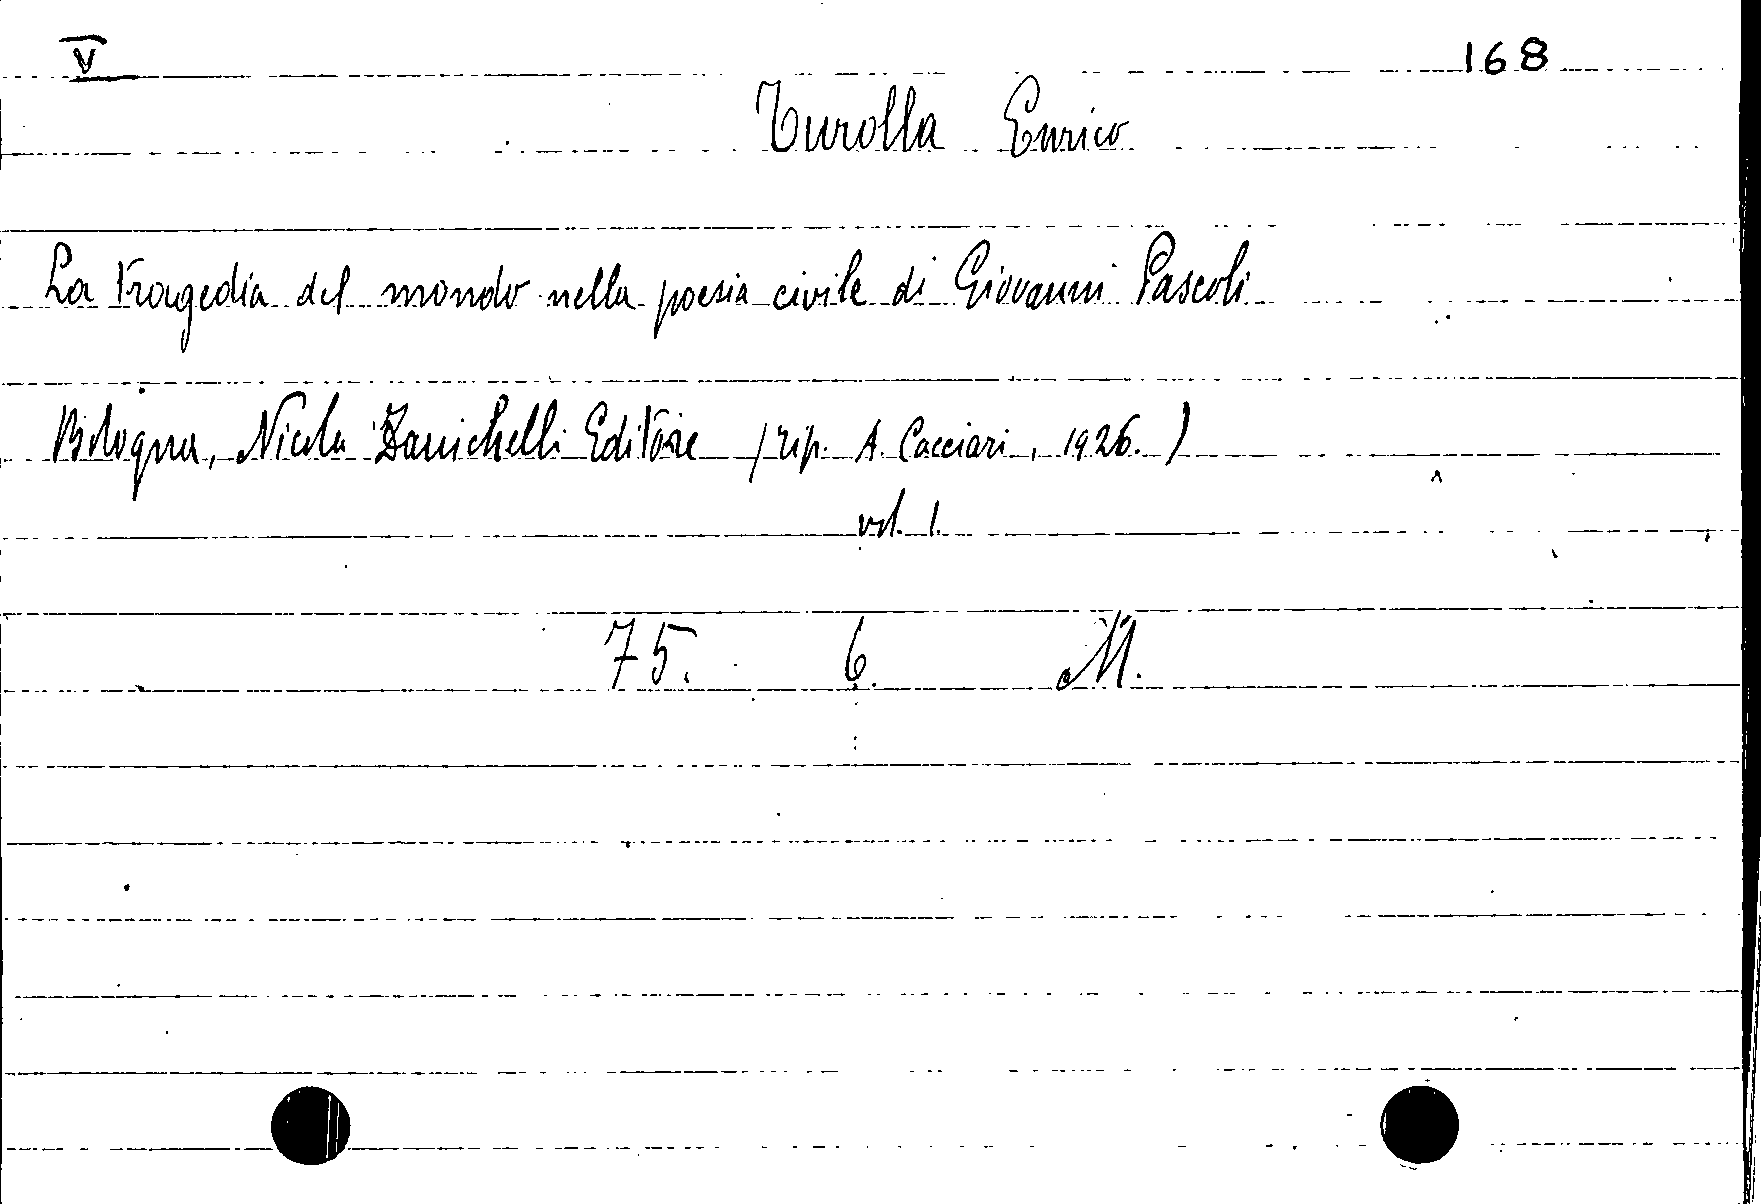 V 168
Turolla Enrico
La tragedia del mondo nella poesia civile di Giovanni Pascoli
Bologna, Nicola Zanichelli Editore (tip. A. Cacciari, 1926.)
vol. 1.
75. 6. M.